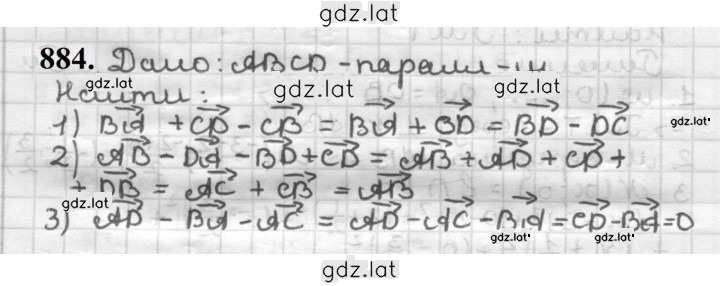 gdz.lat
884. Дано: ABCD - парал-м
gdz.lat gdz.lat
Найти:
1) BA + CD - CB = BA + BD = BD - DC gdz.lat
2) AB - DA - BD + CD = AB + AD + CD +
+ DB = AC + CB = AB
gdz.lat
3) AD - BA - AC = AD - AC - BA = CD - BA = 0
gdz.lat gdz.lat
gdz.lat